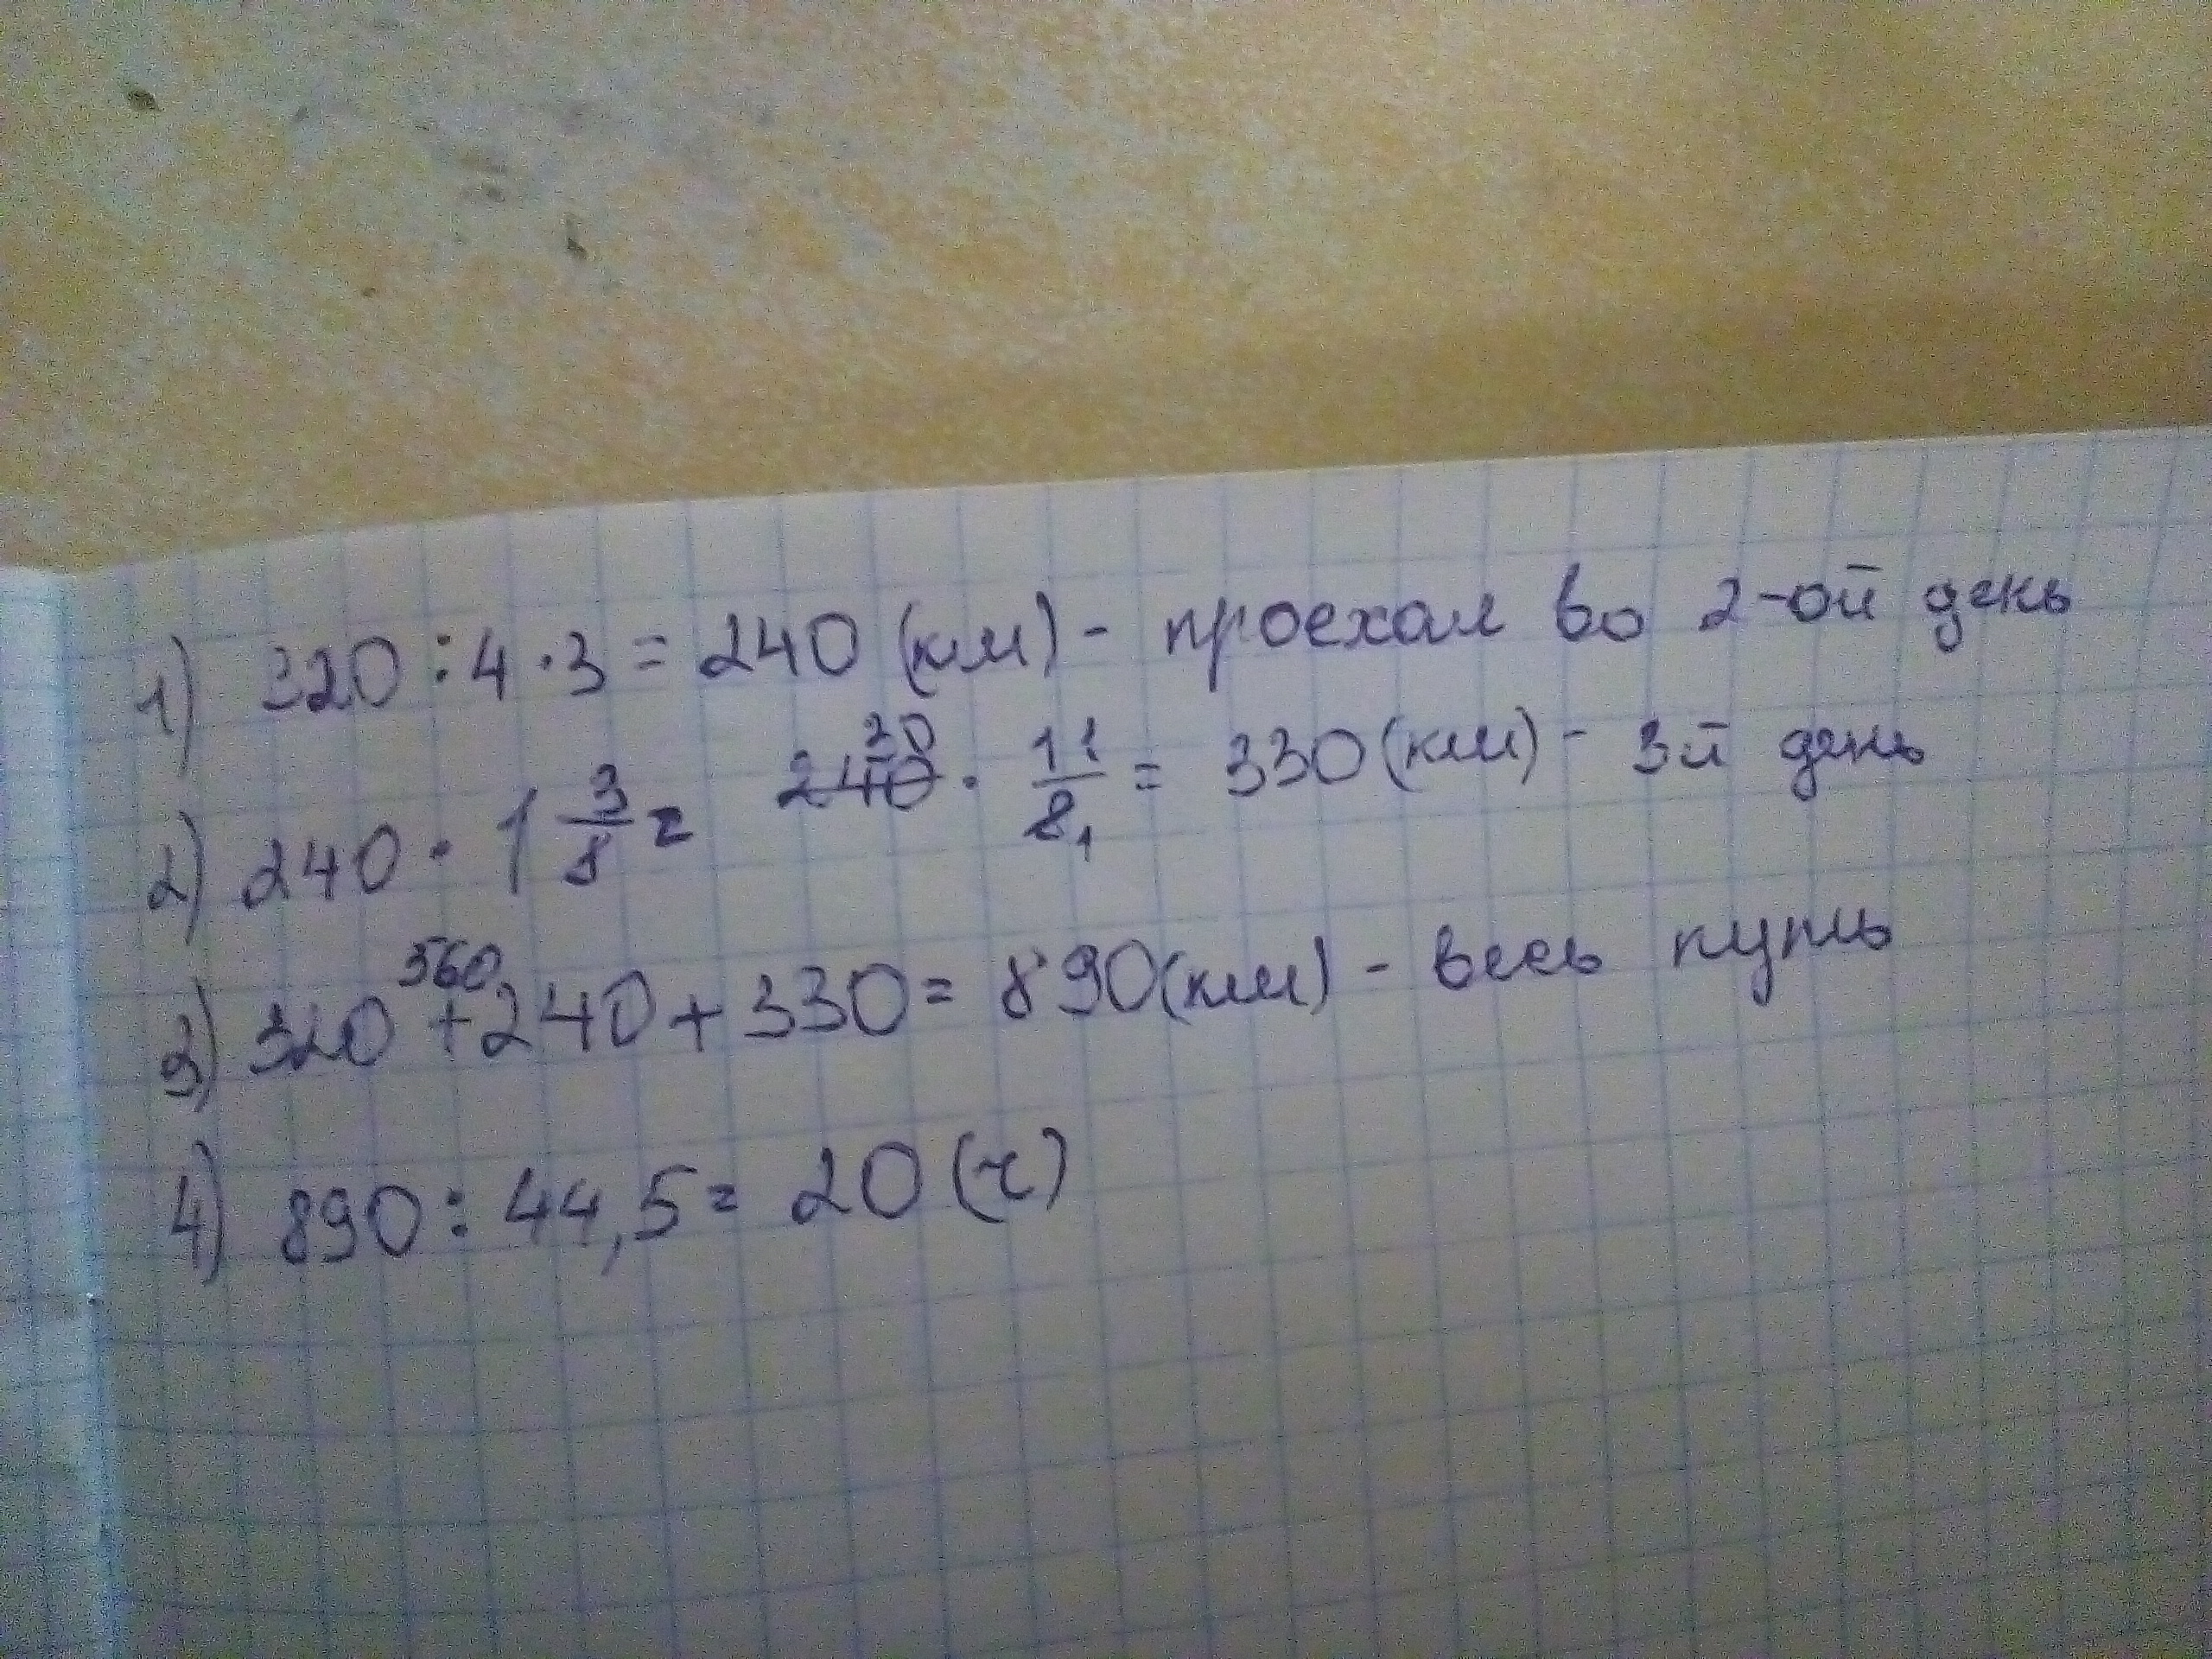 1) 320 : 4 · 3 = 240 (км) - проехал во 2-ой день
2) 240 · 1 3/8 = 240 30 · 11/8 1 = 330 (км) - 3й день
560
3) 320 + 240 + 330 = 890 (км) - весь путь
4) 890 : 44,5 = 20 (ч)